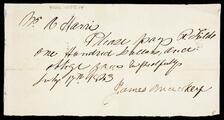 Mr. R Harris
Please pay R Fields
one Hundred Dollars and
oblige yours Respectfully
July 17th 1863
James